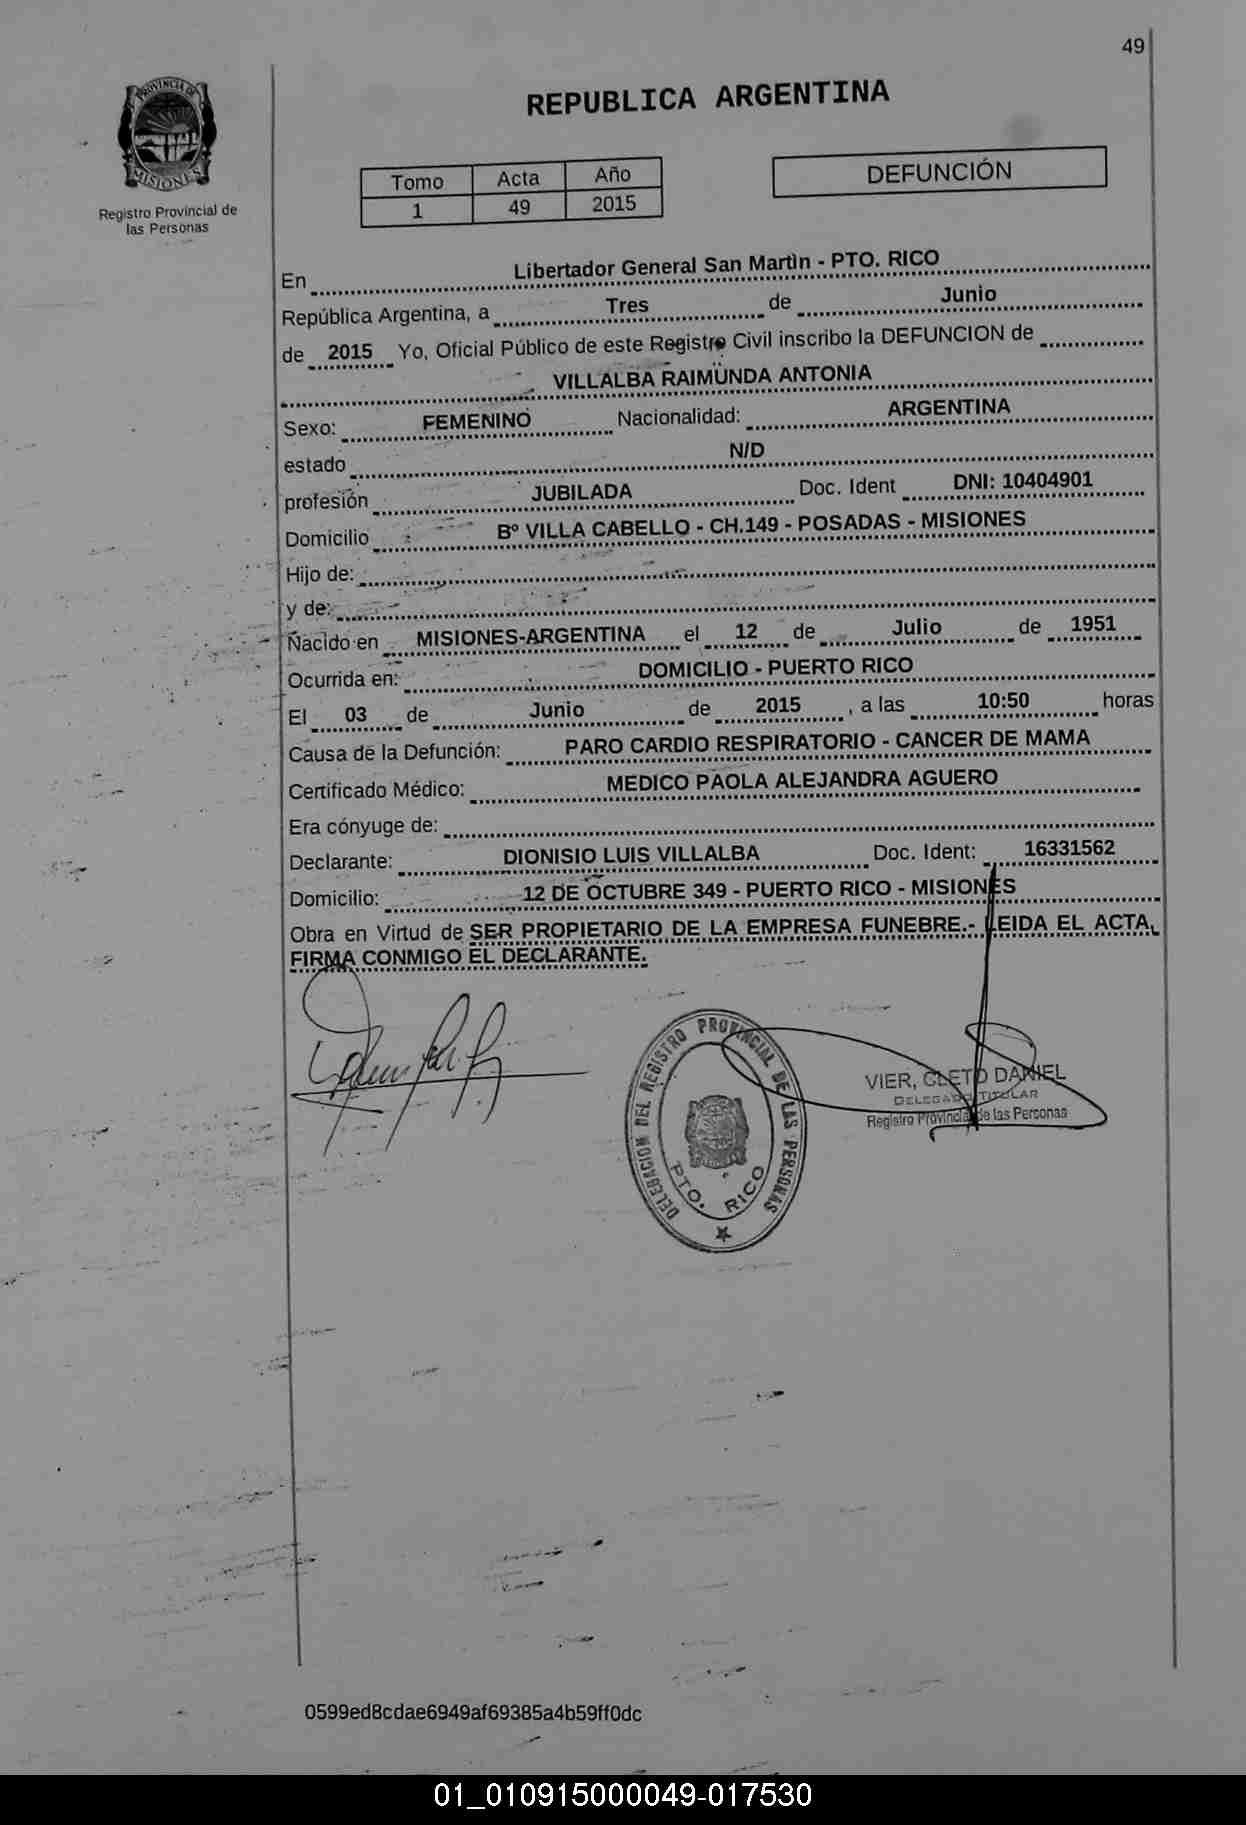 49
PROVINCIA DE
MISIONES
Registro Provincial de
las Personas
REPUBLICA ARGENTINA
Tomo Acta Año
1 49 2015
DEFUNCIÓN
En Libertador General San Martìn - PTO. RICO
República Argentina, a Tres de Junio
de 2015 Yo, Oficial Público de este Registro Civil inscribo la DEFUNCION de
VILLALBA RAIMUNDA ANTONIA
Sexo: FEMENINO Nacionalidad: ARGENTINA
estado N/D
profesión JUBILADA Doc. Ident DNI: 10404901
Domicilio Bº VILLA CABELLO - CH.149 - POSADAS - MISIONES
Hijo de:
y de:
Nacido en MISIONES-ARGENTINA el 12 de Julio de 1951
Ocurrida en: DOMICILIO - PUERTO RICO
El 03 de Junio de 2015 , a las 10:50 horas
Causa de la Defunción: PARO CARDIO RESPIRATORIO - CANCER DE MAMA
Certificado Médico: MEDICO PAOLA ALEJANDRA AGUERO
Era cónyuge de:
Declarante: DIONISIO LUIS VILLALBA Doc. Ident: 16331562
Domicilio: 12 DE OCTUBRE 349 - PUERTO RICO - MISIONES
Obra en Virtud de SER PROPIETARIO DE LA EMPRESA FUNEBRE.- LEIDA EL ACTA,
FIRMA CONMIGO EL DECLARANTE.
DELEGACION DEL REGISTRO PROVINCIAL DE LAS PERSONAS
PTO. RICO
VIER, CLETO DANIEL
DELEGADO TITULAR
Registro Provincial de las Personas
0599ed8cdae6949af69385a4b59ff0dc
01_010915000049-017530